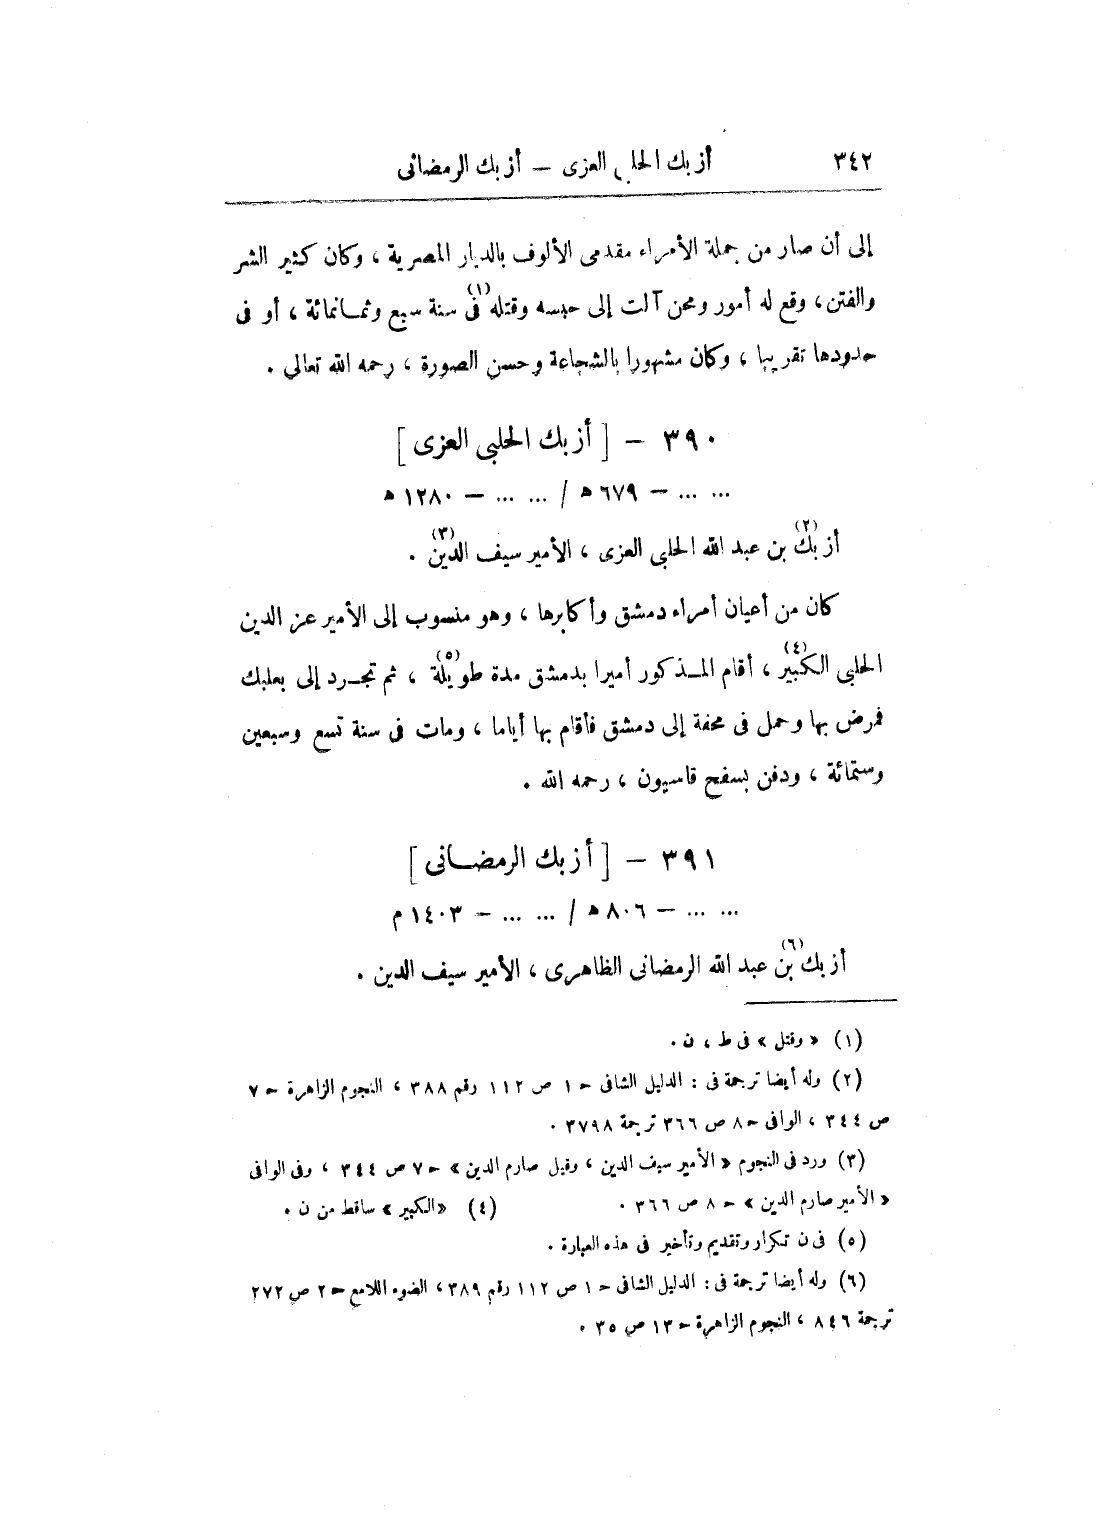 ٣٤٢ أزبك الحلبى العزى — أزبك الرمضانى
إلى أن صار من جملة الأمراء مقدمى الألوف بالديار المصرية ، وكان كثير الشر
والفتن ، وقع له أمور ومحن آلت إلى حبسه وقتله (١) فى سنة سبع وثمـانمائة ، أو فى
حدودها تقريبا ، وكان مشهورا بالشجاعة وحسن الصورة ، رحمه الله تعالى .
٣٩٠ — [ أزبك الحلبى العزى ]
... ... — ٦٧٩ هـ / ... ... — ١٢٨٠ هـ
أزبك (٢) بن عبد الله الحلبى العزى ، الأمير سيف الدين (٣) .
كان من أعيان أمراء دمشق وأكابرها ، وهو منسوب إلى الأمير عز الدين
الحلبى الكبير (٤) ، أقام المـذكور أميرا بدمشق مدة طويلة (٥) ، ثم تجـرد إلى بعلبك
فمرض بها وحمل فى محفة إلى دمشق فأقام بها أياما ، ومات فى سنة تسع وسبعين
وستمائة ، ودفن بسفح قاسيون ، رحمه الله .
٣٩١ — [ أزبك الرمضـانى ]
... ... — ٨٠٦ هـ / ... ... — ١٤٠٣ م
أزبك (٦) بن عبد الله الرمضانى الظاهرى ، الأمير سيف الدين .
(١) « وقتل » فى ط ، ن .
(٢) وله أيضا ترجمة فى : الدليل الشافى حـ ١ ص ١١٢ رقم ٣٨٨ ، النجوم الزاهرة حـ ٧
ص ٣٤٤ ، الوافى حـ ٨ ص ٣٦٦ ترجمة ٣٧٩٨ .
(٣) ورد فى النجوم « الأمير سيف الدين ، وقيل صارم الدين » حـ ٧ ص ٣٤٤ ، وفى الوافى
« الأمير صارم الدين » حـ ٨ ص ٣٦٦ . (٤) « الكبير » ساقط من ن .
(٥) فى ن تكرار وتقديم وتأخير فى هذه العبارة .
(٦) وله أيضا ترجمة فى : الدليل الشافى حـ ١ ص ١١٢ رقم ٣٨٩ ، الضوء اللامع حـ ٢ ص ٢٧٢
ترجمة ٨٤٦ ، النجوم الزاهرة حـ ١٣ ص ٣٥ .